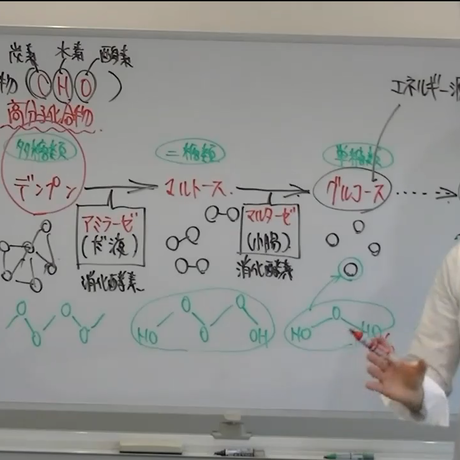 炭素 水素 酸素
物 (C H O)
高分子化合物
多糖類 二糖類 単糖類
エネルギー源
デンプン → マルトース → グルコース ⋯→
アミラーゼ マルターゼ
(だ液) (小腸)
消化酵素 消化酵素
O O O O
HO O O OH
HO O HO